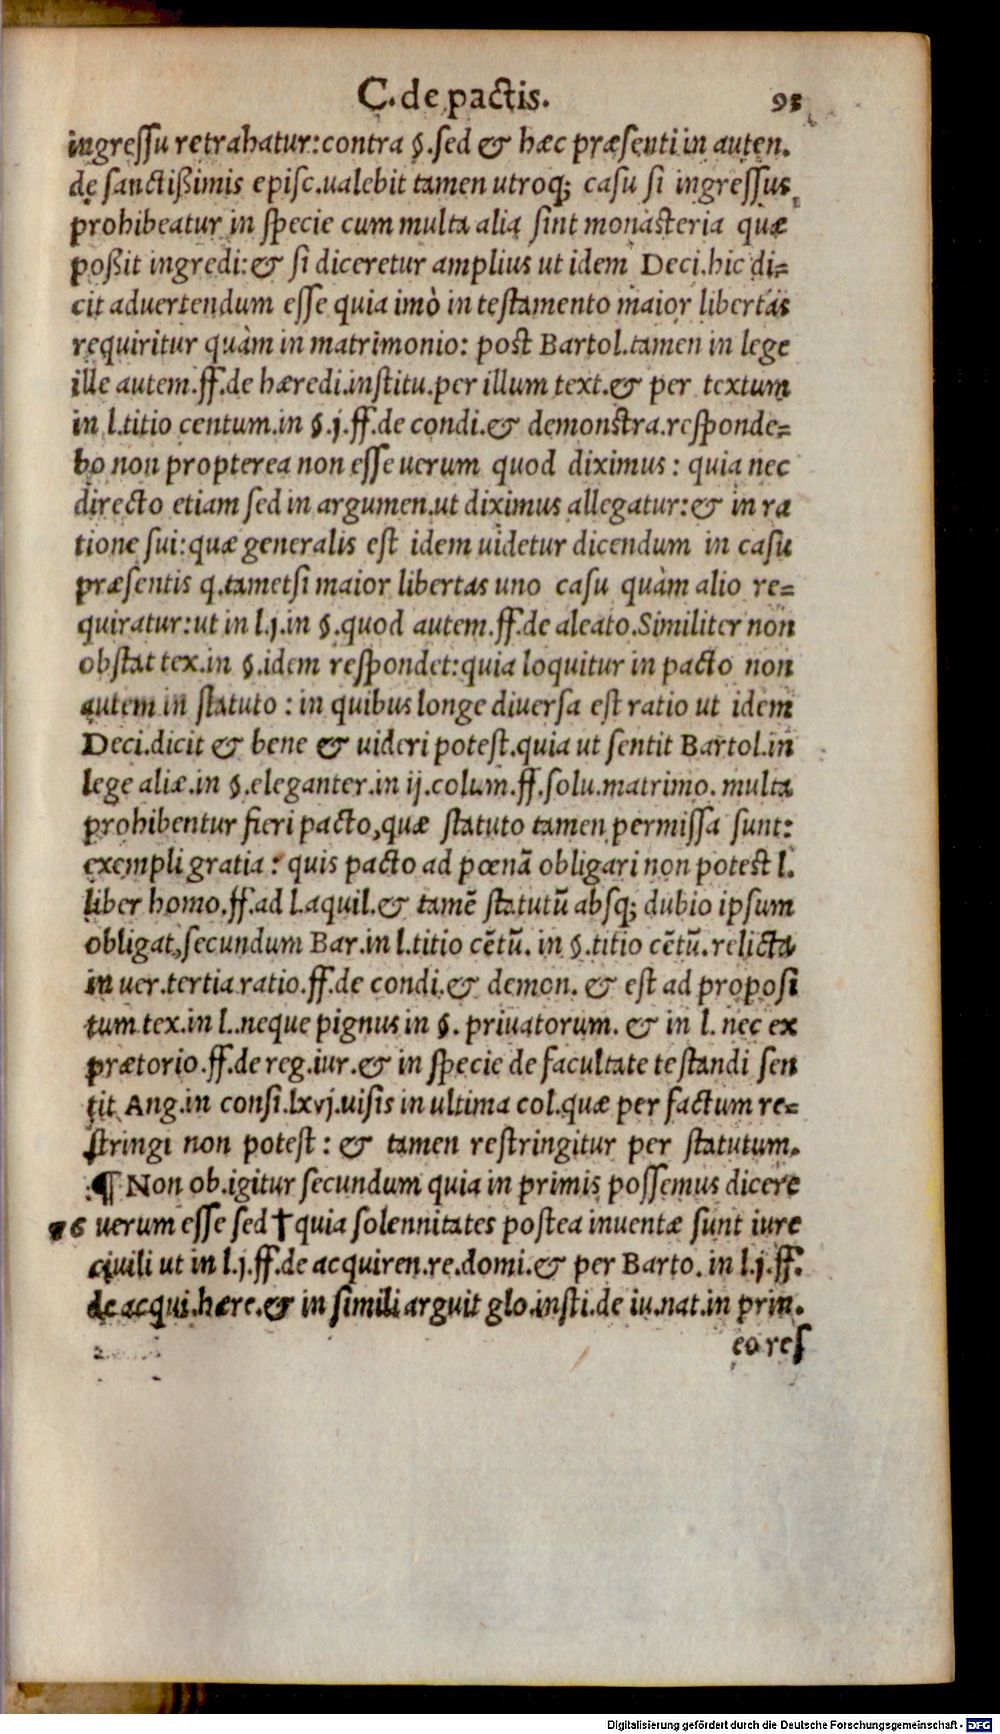 C. de pactis. 95
ingressu retrahatur: contra §. sed & hæc præsenti in auten.
de sanctißimis episc. ualebit tamen utroq; casu si ingressus
prohibeatur in specie cum multa alia sint monasteria quæ
poßit ingredi: & si diceretur amplius ut idem Deci. hic di=
cit aduertendum esse quia imò in testamento maior libertas
requiritur quàm in matrimonio: post Bartol. tamen in lege
ille autem. ff. de hæredi. institu. per illum text. & per textum
in l. titio centum. in §. j. ff. de condi. & demonstra. responde=
bo non propterea non esse uerum quod diximus: quia nec
directo etiam sed in argumen. ut diximus allegatur: & in ra
tione sui: quæ generalis est idem uidetur dicendum in casu
præsentis q. tametsi maior libertas uno casu quàm alio re=
quiratur: ut in l. j. in §. quod autem. ff. de aleato. Similiter non
obstat tex. in §. idem respondet: quia loquitur in pacto non
autem in statuto: in quibus longe diuersa est ratio ut idem
Deci. dicit & bene & uideri potest. quia ut sentit Bartol. in
lege aliæ. in §. eleganter. in ij. colum. ff. solu. matrimo. multa
prohibentur fieri pacto, quæ statuto tamen permissa sunt:
exempli gratia: quis pacto ad pœnã obligari non potest l.
liber homo. ff. ad l. aquil. & tamẽ statutũ absq; dubio ipsum
obligat, secundum Bar. in l. titio cẽtũ. in §. titio cẽtũ. relicta
in uer. tertia ratio. ff. de condi. & demon. & est ad proposi
tum tex. in l. neque pignus in §. priuatorum. & in l. nec ex
prætorio. ff. de reg. iur. & in specie de facultate testandi sen
tit Ang. in consi. lxvj. uisis in ultima col. quæ per factum re=
stringi non potest: & tamen restringitur per statutum.
¶ Non ob. igitur secundum quia in primis possemus dicere
76 uerum esse sed † quia solennitates postea inuentæ sunt iure
ciuili ut in l. j. ff. de acquiren. re. domi. & per Barto. in l. j. ff.
de acqui. hære. & in simili arguit glo. insti. de iu. nat. in prin.
eo res
Digitalisierung gefördert durch die Deutsche Forschungsgemeinschaft - DFG